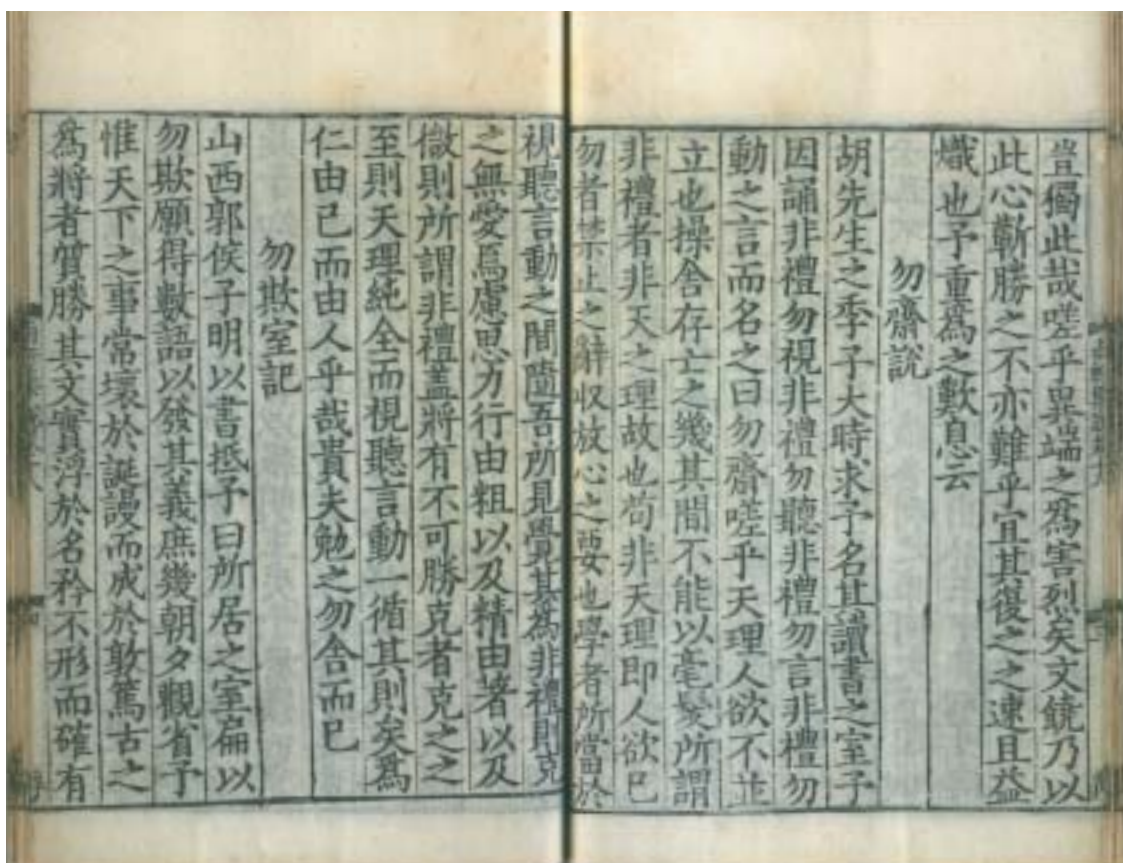 豈獨此哉嗟乎異端之爲害烈矣文饒乃以
此心蘄勝之不亦難乎宜其復之之速且益
熾也予重爲之歎息云
勿齋說
胡先生之季子大時求予名其讀書之室予
因誦非禮勿視非禮勿聽非禮勿言非禮勿
動之言而名之曰勿齋嗟乎天理人欲不並
立也操舍存亡之幾其間不能以毫髮所謂
非禮者非天之理故也苟非天理即人欲已
勿者禁止之辭収放心之要也學者所當於
視聽言動之間隨吾所見覺其爲非禮則克
之無愛焉慮思力行由粗以及精由著以及
微則所謂非禮盖將有不可勝克者克之之
至則天理純全而視聽言動一循其則矣爲
仁由已而由人乎哉貴夫勉之勿舍而已
勿欺室記
山西郭侯子明以書抵予曰所居之室扁以
勿欺願得數語以發其義庶幾朝夕觀省予
惟天下之事常壞於誕謾而成於敦篤古之
爲將者質勝其文實浮於名矜不形而確有